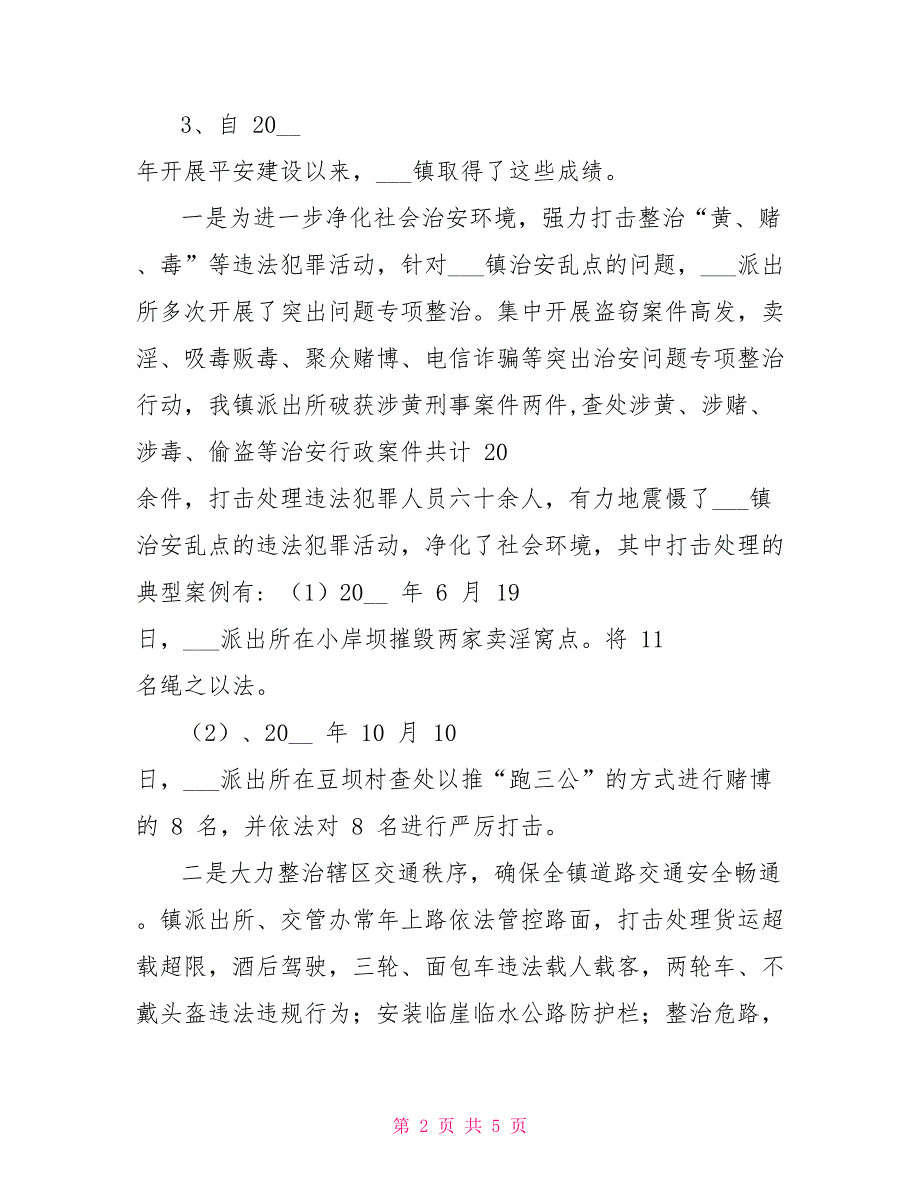 3、自 20__
年开展平安建设以来，___镇取得了这些成绩。
一是为进一步净化社会治安环境，强力打击整治“黄、赌
、毒”等违法犯罪活动，针对___镇治安乱点的问题，___派出
所多次开展了突出问题专项整治。集中开展盗窃案件高发，卖
淫、吸毒贩毒、聚众赌博、电信诈骗等突出治安问题专项整治
行动，我镇派出所破获涉黄刑事案件两件,查处涉黄、涉赌、
涉毒、偷盗等治安行政案件共计 20
余件，打击处理违法犯罪人员六十余人，有力地震慑了___镇
治安乱点的违法犯罪活动，净化了社会环境，其中打击处理的
典型案例有: （1）20__ 年 6 月 19
日，___派出所在小岸坝摧毁两家卖淫窝点。将 11
名绳之以法。
（2）、20__ 年 10 月 10
日，___派出所在豆坝村查处以推“跑三公”的方式进行赌博
的 8 名，并依法对 8 名进行严厉打击。
二是大力整治辖区交通秩序，确保全镇道路交通安全畅通
。镇派出所、交管办常年上路依法管控路面，打击处理货运超
载超限，酒后驾驶，三轮、面包车违法载人载客，两轮车、不
戴头盔违法违规行为；安装临崖临水公路防护栏；整治危路，
第 2 页 共 5 页